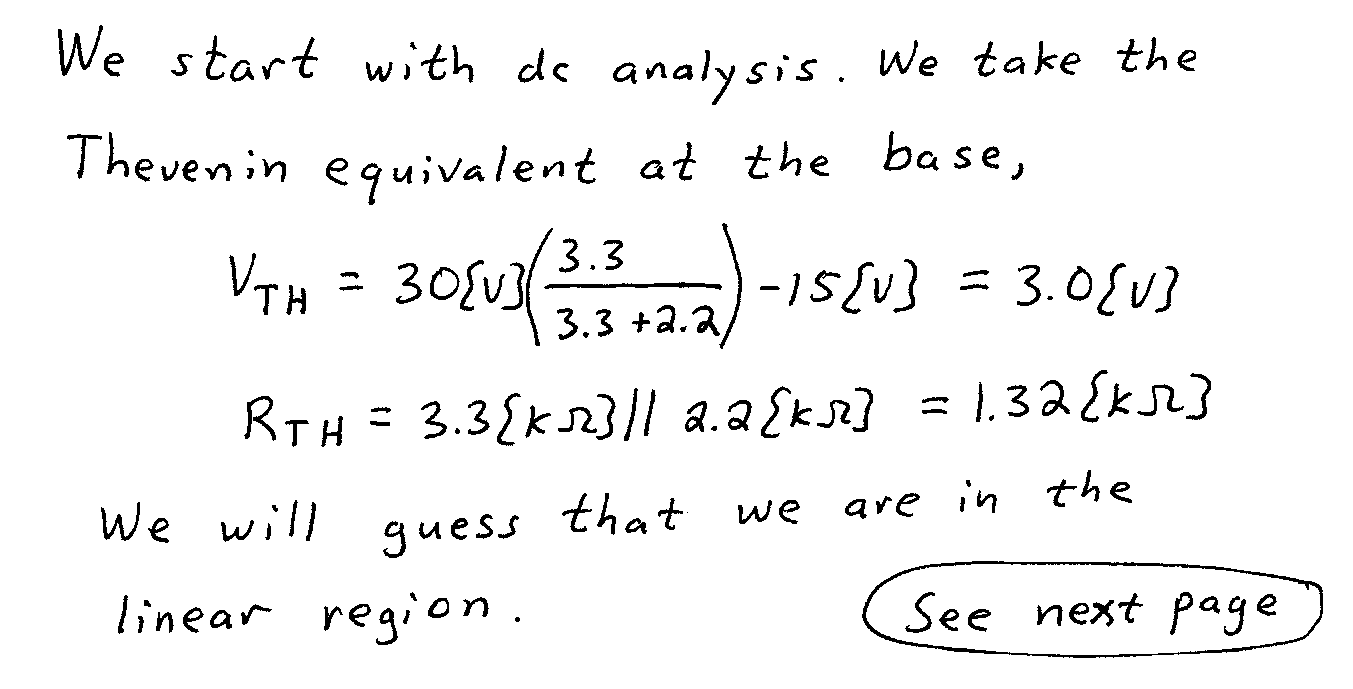 We start with dc analysis. We take the
Thevenin equivalent at the base,
V_TH = 30{V}(3.3/(3.3+2.2)) - 15{V} = 3.0{V}
R_TH = 3.3{kΩ}||2.2{kΩ} = 1.32{kΩ}
We will guess that we are in the
linear region.
See next page